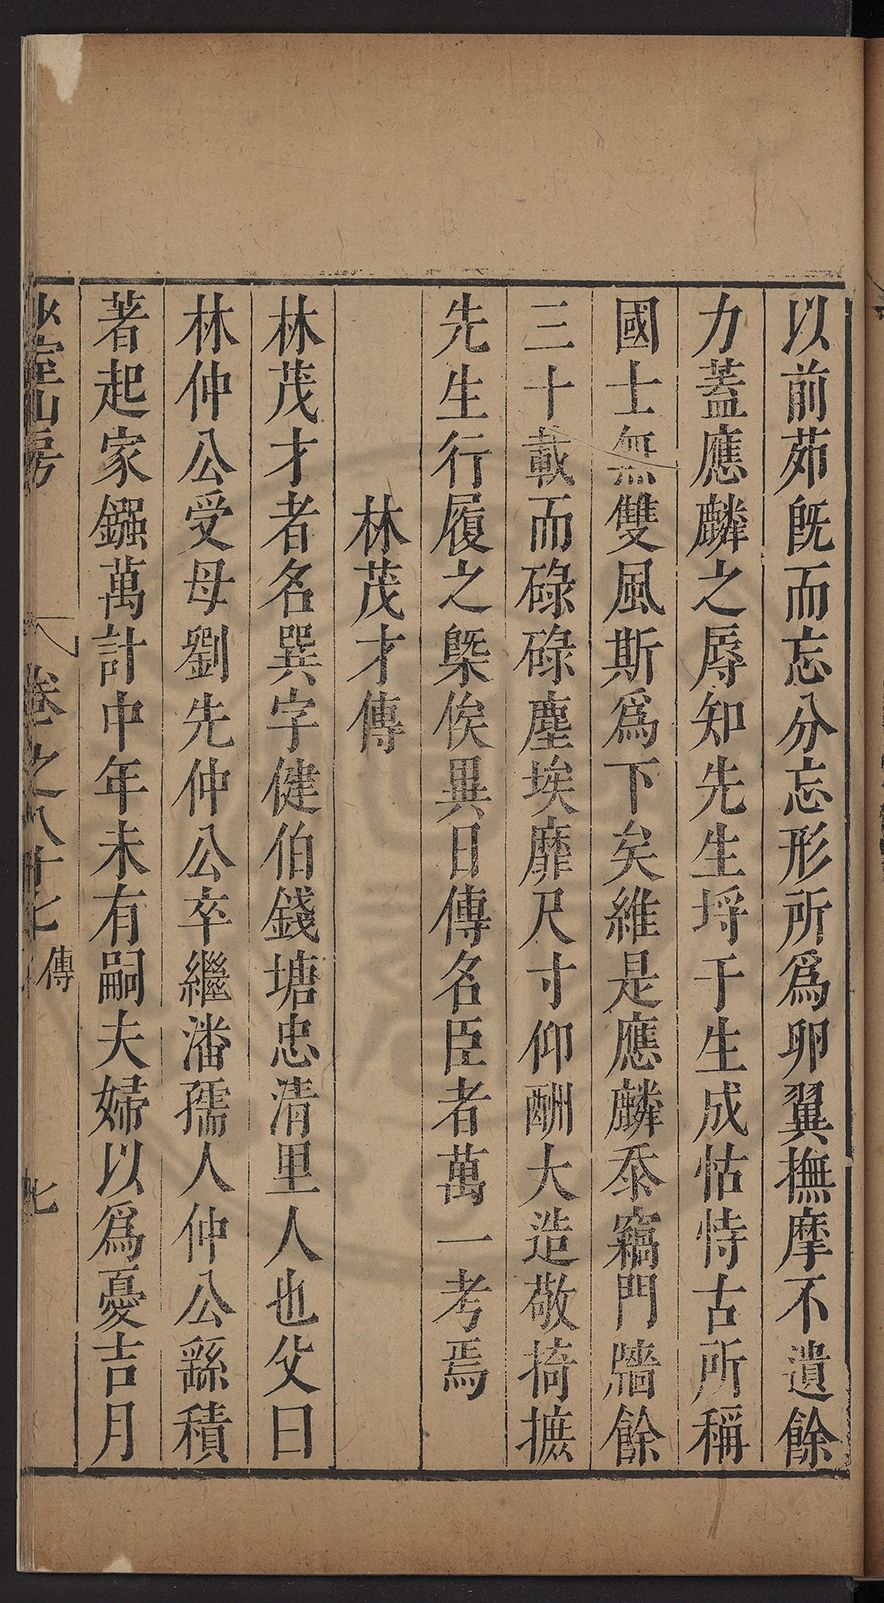 以前茆旣而忘分忘形所爲卵翼撫摩不遺餘
力蓋應麟之辱知先生埒于生成怙恃古所稱
國士無雙風斯爲下矣維是應麟忝竊門牆餘
三十載而碌碌塵埃靡尺寸仰酬大造敬掎摭
先生行履之槩俟異日傳名臣者萬一考焉
林茂才傳
林茂才者名巽字健伯錢塘忠清里人也父曰
林仲公受母劉先仲公卒繼潘孺人仲公繇積
著起家鏹萬計中年未有嗣夫婦以爲憂吉月
少室山房
卷之八十七
傳
七